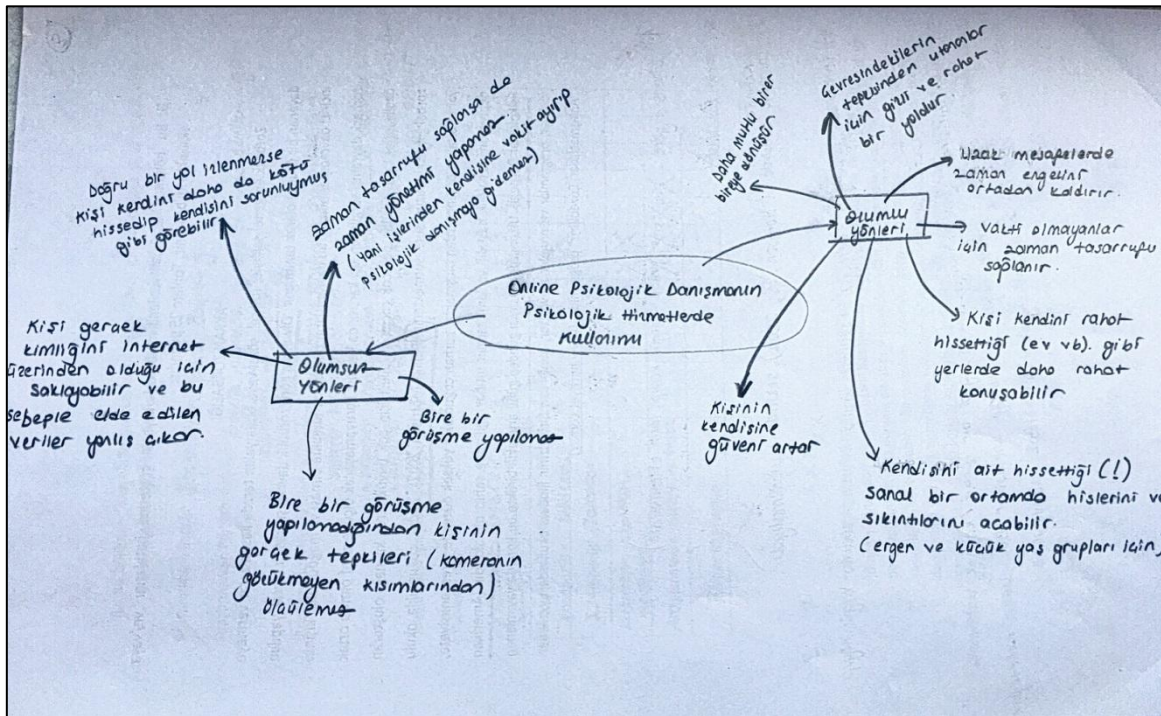 Doğru bir yol izlenmezse
kişi kendini daha da kötü
hissedip kendisini sorunluymuş
gibi görebilir
Zaman tasarrufu sağlansa da
zaman yönetimi yapamaz.
(Yani işlerinden kendisine vakit ayırıp
psikolojik danışmaya gidemez)
Kişi gerçek
kimliğini internet
üzerinden olduğu için
saklayabilir ve bu
sebeple elde edilen
veriler yanlış çıkar.
Olumsuz
yönleri
Bire bir
görüşme yapılamaz
Bire bir görüşme
yapılamadığından kişinin
gerçek tepkileri (kameranın
gözükmeyen kısımlarından)
ölçülemez
Online Psikolojik Danışmanın
Psikolojik Hizmetlerde
Kullanımı
Olumlu
yönleri
Daha mutlu birer
bireye dönüşür
Çevresindekilerin
tepkisinden utananlar
için gizli ve rahat
bir yoldur.
Uzak mesafelerde
zaman engelini
ortadan kaldırır.
Vakti olmayanlar
için zaman tasarrufu
sağlanır.
Kişi kendini rahat
hissettiği (ev vb). gibi
yerlerde daha rahat
konuşabilir
Kişinin
kendisine
güveni artar
Kendisini ait hissettiği (!)
Sanal bir ortamda hislerini ve
sıkıntılarını açabilir.
(ergen ve küçük yaş grupları için)